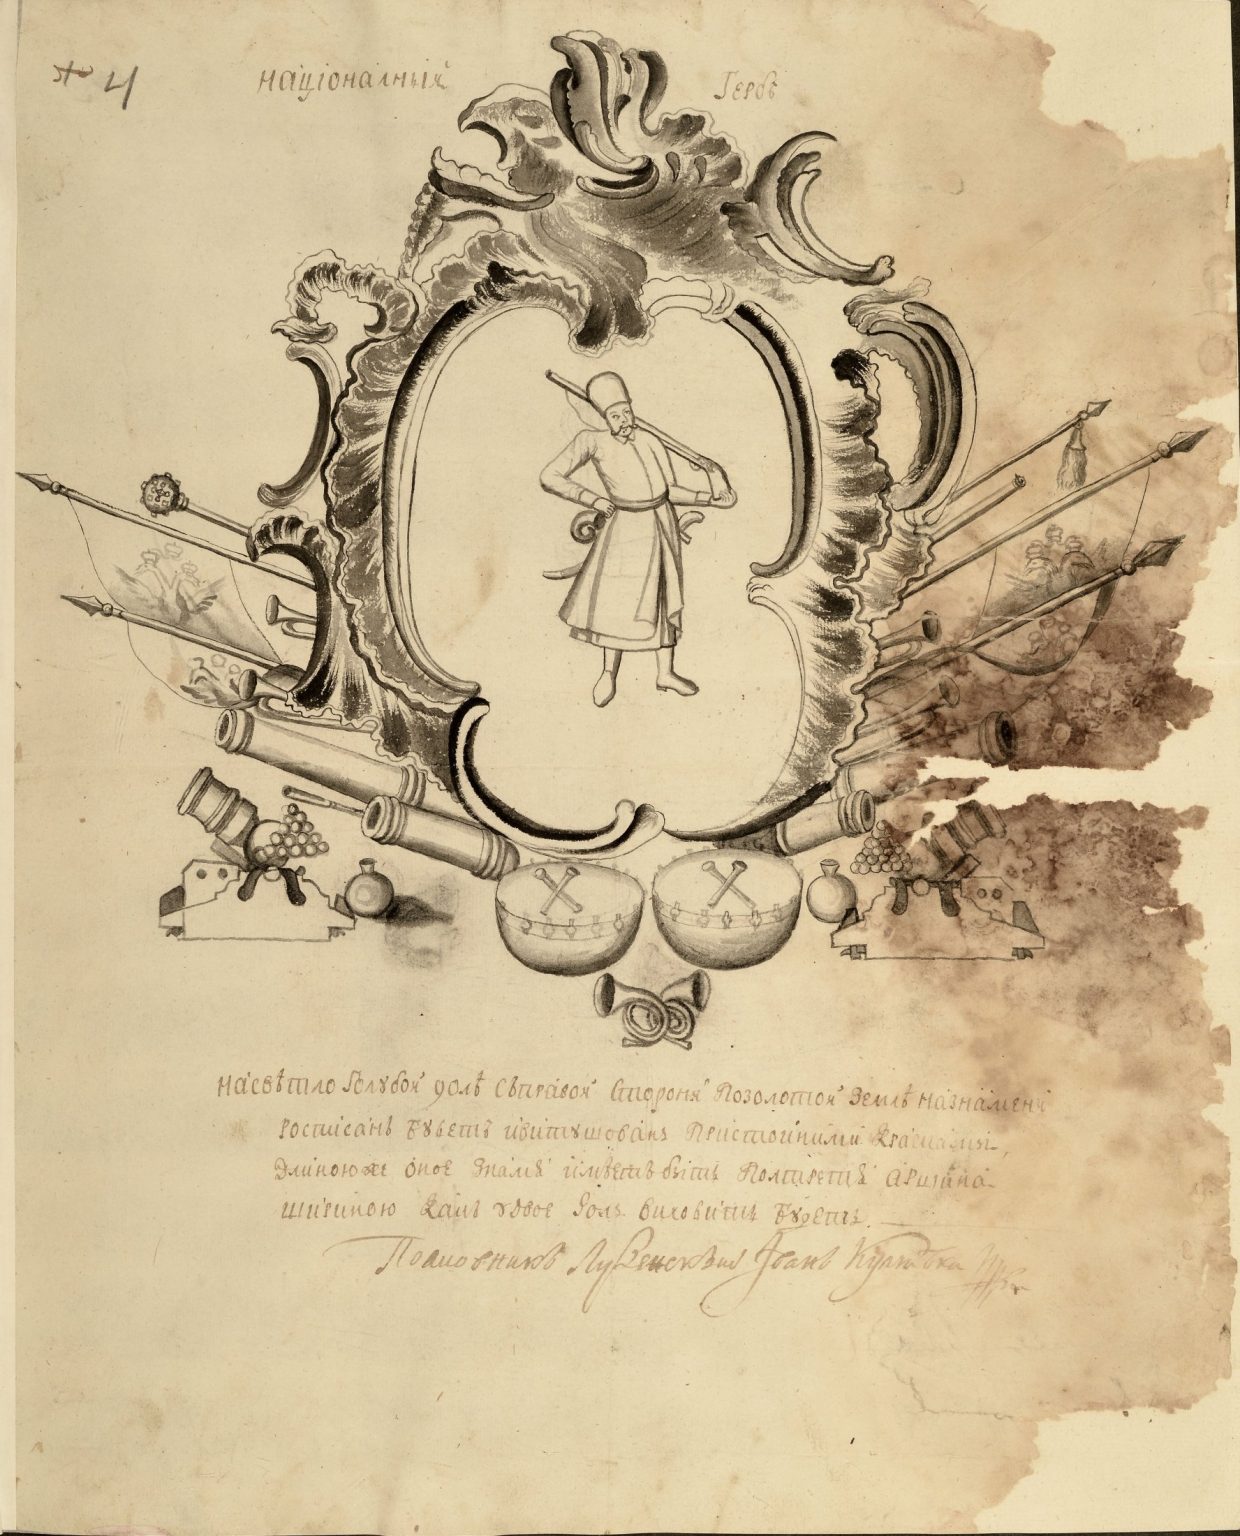 № 4
Націоналний Гербъ
На свѣтло Голубой полѣ Съправой Сторони Позолотой Землѣ на знамени
росписанъ Будетъ и витушованъ Пристойними Красками,
Длиною же оное Знамя имѣетъ бить Полтретя Аршина
шириною Какъ удвое Полъ виховитъ Будетъ.
Полковникъ Лубенский Іванъ Кулябка